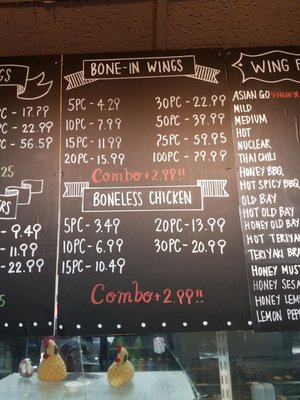 GS
- 17.79
- 22.99
- 56.59
25
ERS
- 9.49
- 11.99
- 22.99
BONE-IN WINGS
5PC - 4.29
10PC - 7.99
15PC - 11.99
20PC - 15.99
30PC - 22.99
50PC - 39.99
75PC - 59.95
100PC - 79.99
Combo + 2.99!!
BONELESS CHICKEN
5PC - 3.49
10PC - 6.99
15PC - 10.49
20PC - 13.99
30PC - 20.99
Combo + 2.99!!
WING F
ASIAN GO
MILD
MEDIUM
HOT
NUCLEAR
THAI CHILI
HONEY BBQ
HOT SPICY BBQ
OLD BAY
HOT OLD BAY
HONEY OLD BAY
HOT TERIYA
TERIYAKI BRA
HONEY MUST
HONEY SESA
HONEY LEMO
LEMON PEP